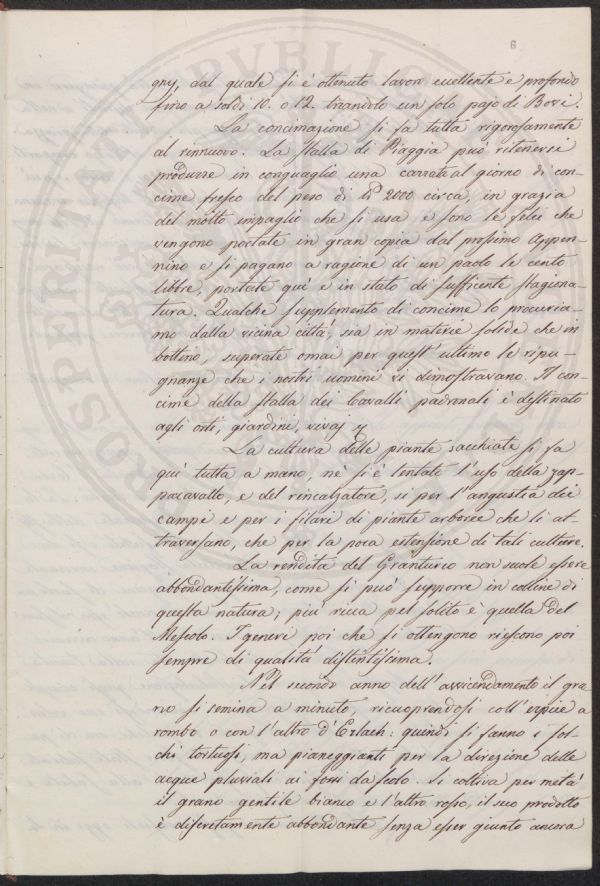 6
gny, dal quale si è ottenuto lavoro eccellente e profondo
fino a soldi 10. o 12. tirandolo un solo pajo di Bovi.
La concimazione si fa tutta rigorosamente
al rinnuovo. La stalla di Piaggia può ritenersi
produrre in conguaglio una carrata al giorno di con-
cime fresco del peso di lb 2000 circa, in grazia
del molto impaglio che si usa e sono le felci che
vengono portate in gran copia dal prossimo Appen-
nino e si pagano a ragione di un paolo le cento
libbre, portate quì e in stato di sufficente stagiona-
tura. Qualche supplemento di concime lo procuria-
mo dalla vicina città, sia in materie solide che in
bottino, superate omai per quest' ultimo le ripu-
gnanze che i nostri uomini vi dimostravano. Il con-
cime della stalla dei Cavalli padronali è destinato
agli orti, giardini, vivaj
La cultura delle piante sacchiate si fa
quì tutta a mano, nè si è tentato l'uso della zap-
pacavallo, e del rincalzatore, sì per l'angustia dei
campi e per i filari di piante arboree che li at-
traversano, che per la poca estensione di tali culture.
La rendita del Granturco non suole essere
abbondantissima, come si può supporre in colline di
questa natura; più ricca pel solito è quella del
Mescolo. I generi poi che si ottengono riescono poi
sempre di qualità distintissima.
Nel secondo anno dell' avvicendamento il gra-
no si semina a minuto, ricuoprendosi coll' erpice a
rombo o con l'altro d'Erlach: quindi si fanno i sol-
chi tortuosi, ma pianeggianti per la direzione delle
acque pluviali ai fossi da scolo. Si coltiva per metà
il grano gentile bianco e l'altro rosso, il suo prodotto
è discretamente abbondante senza esser giunto ancora
PROSPERITATI PVBLIC